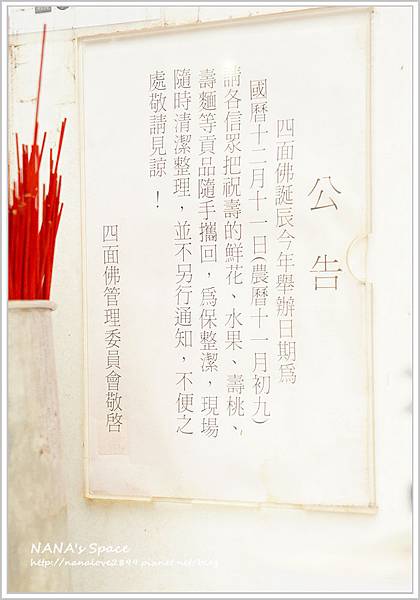 公告
四面佛誕辰今年舉辦日期為
國曆十二月十一日(農曆十一月初九)
請各信眾把祝壽的鮮花、水果、壽桃、
壽麵等貢品隨手攜回，為保整潔，現場
隨時清潔整理，並不另行通知，不便之
處敬請見諒！
四面佛管理委員會敬啓
NANA's Space
http://nanalove2899.pixnet.net/blog